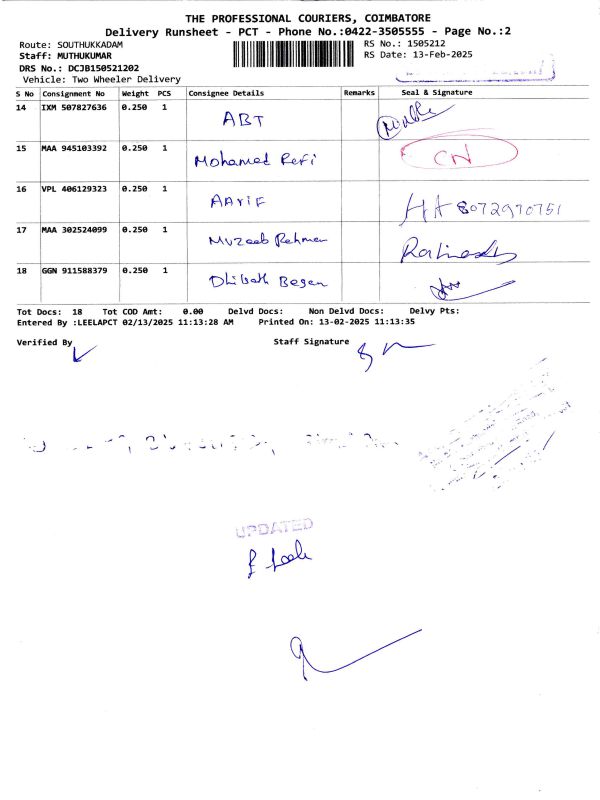 THE PROFESSIONAL COURIERS, COIMBATORE
Delivery Runsheet - PCT - Phone No.:0422-3505555 - Page No.:2
Route: SOUTHUKKADAM RS No.: 1505212
Staff: MUTHUKUMAR RS Date: 13-Feb-2025
DRS No.: DCJB150521202
Vehicle: Two Wheeler Delivery
S No Consignment No Weight PCS Consignee Details Remarks Seal & Signature
14 IXM 507827636 0.250 1 ABT
15 MAA 945103392 0.250 1 Mohamed Refi CN
16 VPL 406129323 0.250 1 AAYIF 8072970751
17 MAA 302524099 0.250 1 Muzeeb Rehman
18 GGN 911588379 0.250 1 Begam
Tot Docs: 18 Tot COD Amt: 0.00 Delvd Docs: Non Delvd Docs: Delvy Pts:
Entered By :LEELAPCT 02/13/2025 11:13:28 AM Printed On: 13-02-2025 11:13:35
Verified By Staff Signature
UPDATED